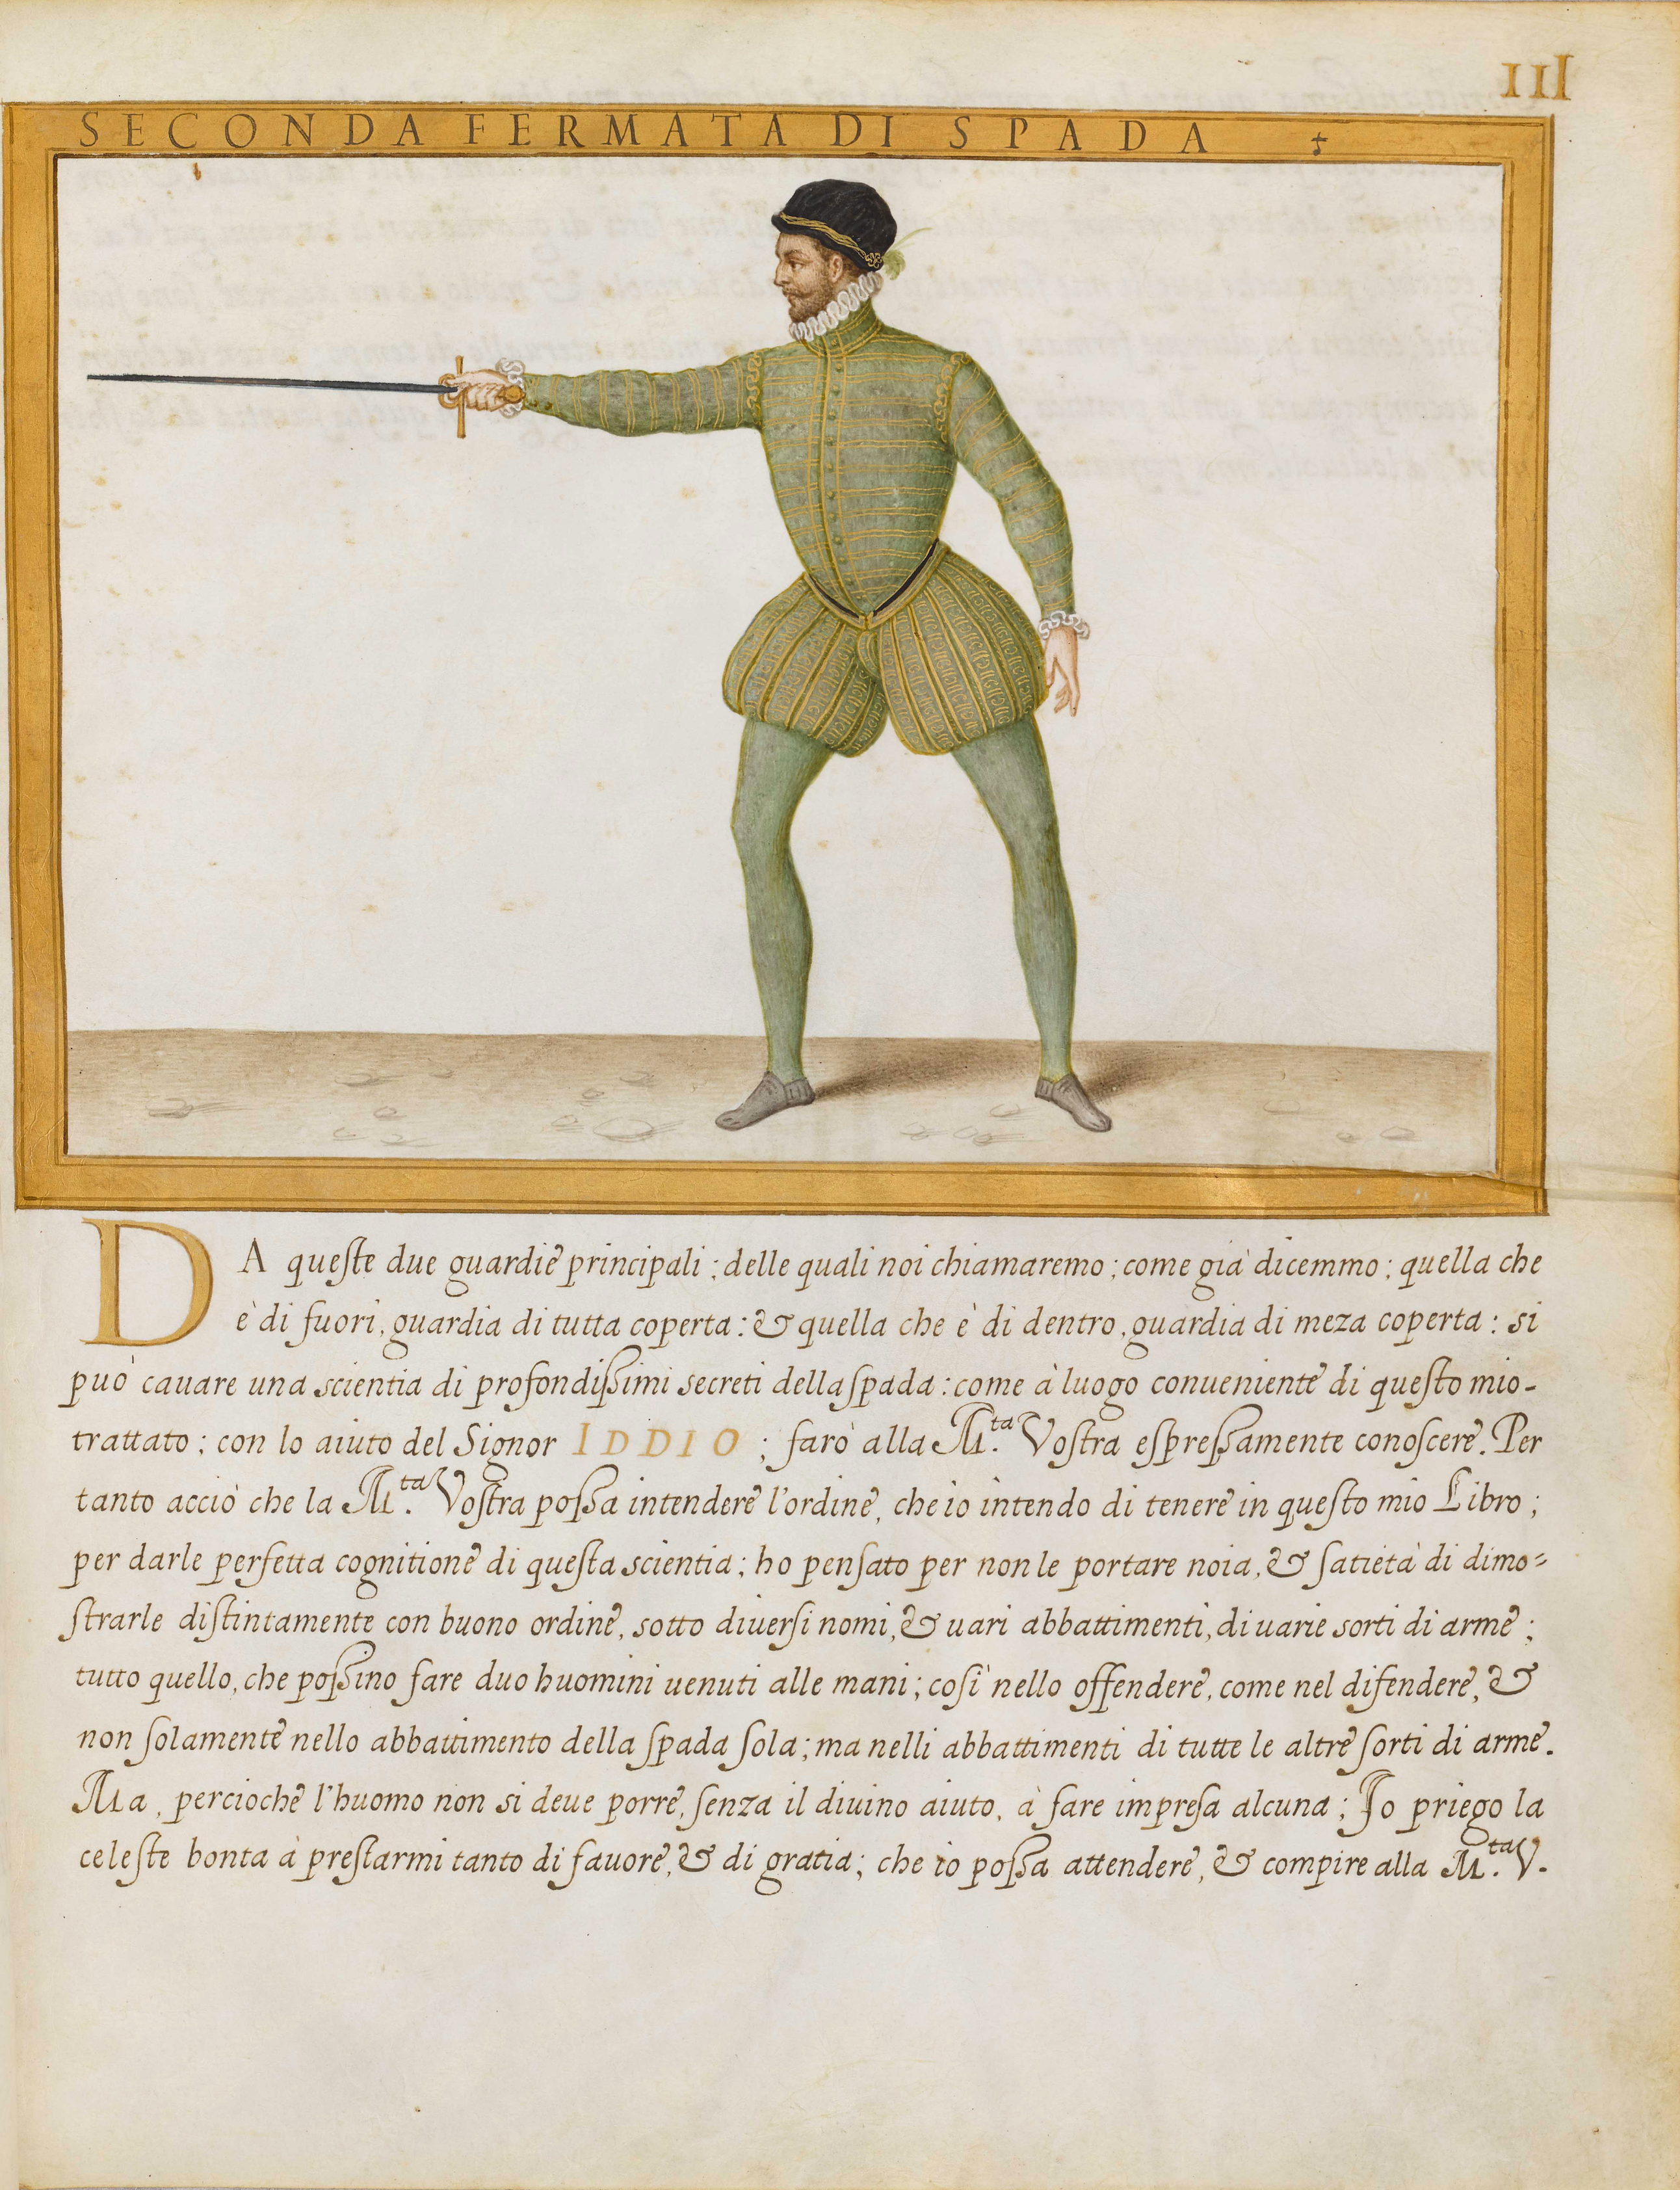 III
SECONDA FERMATA DI SPADA +
DA queste due guardie principali; delle quali noi chiamaremo; come già dicemmo; quella che
è di fuori, guardia di tutta coperta: & quella che è di dentro, guardia di meza coperta: si
può cauare una scientia di profondissimi secreti della spada: come à luogo conueniente di questo mio-
trattato; con lo aiuto del Signor IDDIO; farò alla M.ta Vostra espressamente conoscere. Per
tanto acciò che la M.ta Vostra possa intendere l'ordine, che io intendo di tenere in questo mio Libro;
per darle perfetta cognitione di questa scientia; ho pensato per non le portare noia, & satietà di dimo=
strarle distintamente con buono ordine, sotto diuersi nomi, & uari abbattimenti, di uarie sorti di arme;
tutto quello, che possino fare duo huomini uenuti alle mani; così nello offendere, come nel difendere, &
non solamente nello abbattimento della spada sola; ma nelli abbattimenti di tutte le altre sorti di arme.
Ma, percioche l'huomo non si deue porre, senza il diuino aiuto, à fare impresa alcuna; Io priego la
celeste bonta à prestarmi tanto di fauore, & di gratia; che io possa attendere, & compire alla M.ta V.